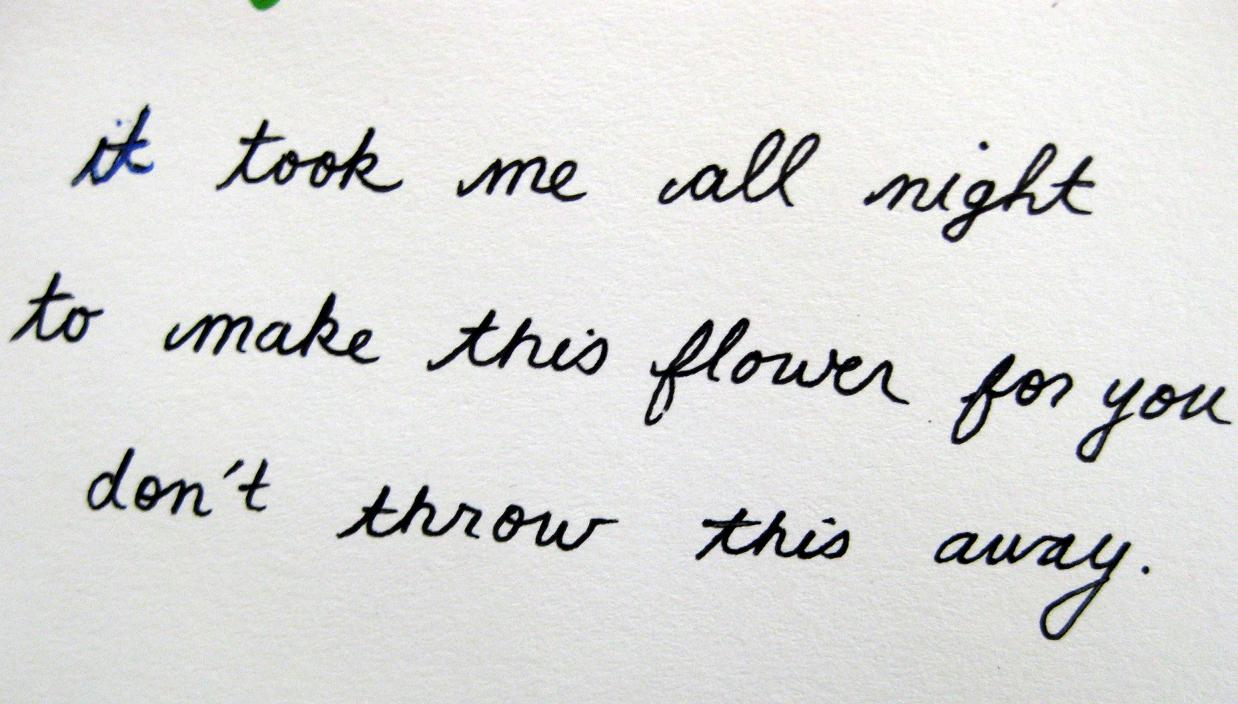 it took me all night
to make this flower for you
don't throw this away.